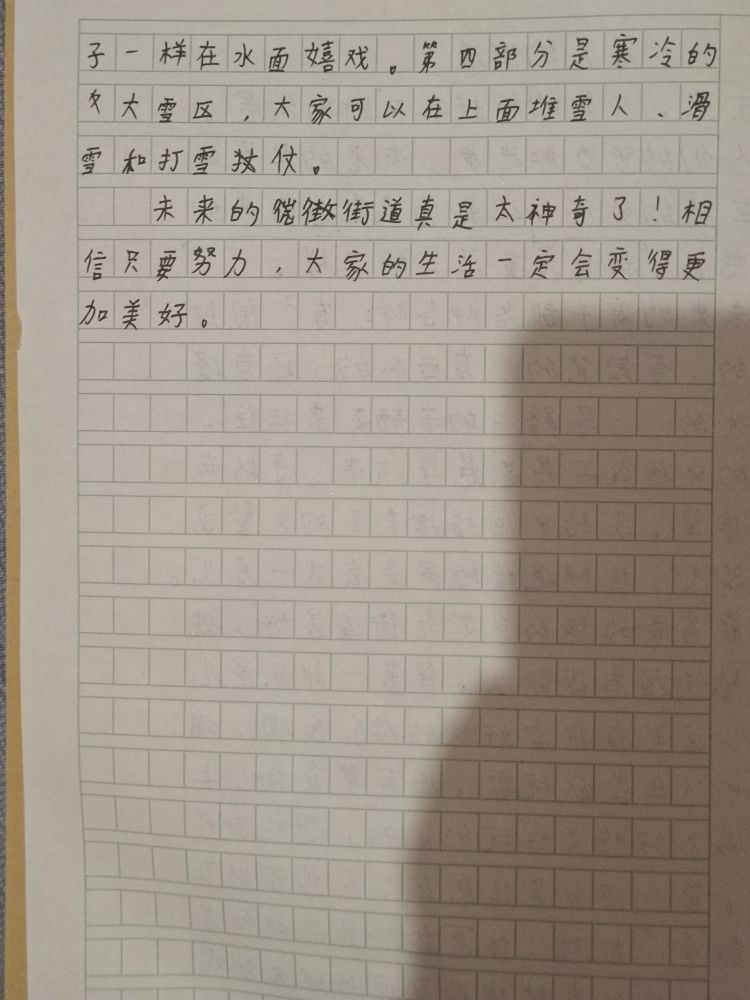 子一样在水面嬉戏。第四部分是寒冷的
大雪区，大家可以在上面堆雪人、滑
雪和打雪仗。
未来的街道真是太神奇了！相
信只要努力，大家的生活一定会变得更
加美好。